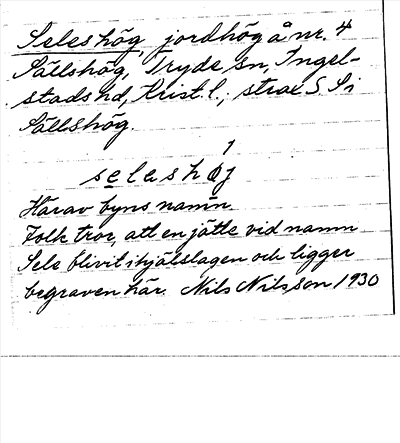 Seleshög, jordhög å nr. 4
Sällshög, Tryde sn, Ingel-
stads hd, Krist. l.; strax S. i
Sällshög.
1
seleshøj
Härav byns namn.
Folk tror, att en jätte vid namn
Sele blivit ihjälslagen och ligger
begraven här. Nils Nilsson 1930